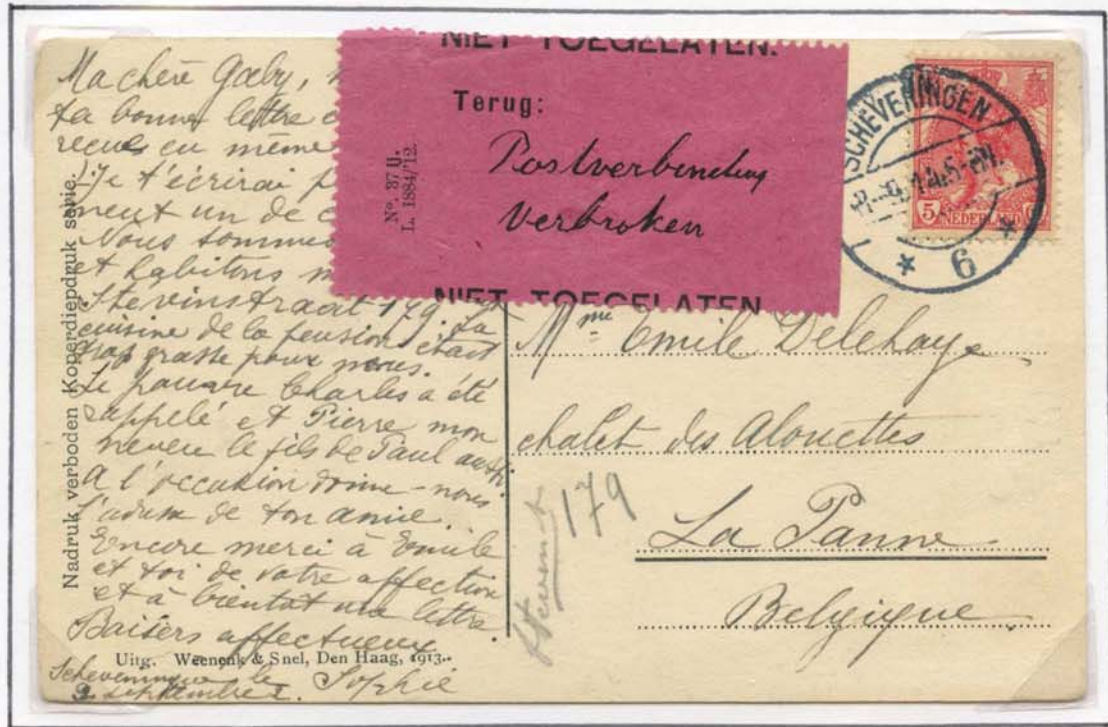 Ma chère Gaby,
ta bonne lettre
recues en même
Je t'écrirai
ment un de
Nous sommes
et habitons
Stevinstraat 179. La
cuisine de la pension était
trop grasse pour nous.
Le pauvre Charles a été
rappelé et Pierre mon
neveu le fils de Paul aussi.
A l'occasion donne-nous
de ton amie.
Encore merci à Emile
et toi de votre affection
et à bientôt ma lettre.
Baisers affectueux
Sophie
Scheveningue le
septembre
Nadruk verboden Koperdiepdruk serie.
Uitg. Weenenk & Snel, Den Haag, 1913.
NIET TOEGELATEN.
Terug:
Postverbinding
verbroken
No. 37 U.
L. 1884/'12.
NIET TOEGELATEN
SCHEVENINGEN
6
5
NEDERLAND
Mme Emile Delehaye
chalet des Alouettes
La Panne
Belgique
179